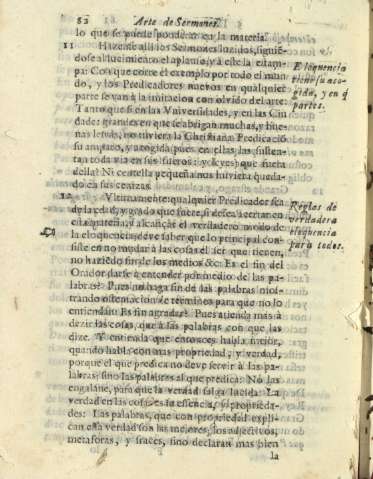 82 Arte de Sermones,
lo que se puede ponderar en la materia.
11 Hazense alli los Sermones luzidos, siguiē-
dose al lucimiento el aplauso, y a este la estam-
pa: Con que corre el exemplo por todo el mun-
do, y los Predicadores nuevos en qualquier
parte se van à la imitacion con olvido del arte:
Tanto que si en las Vniversidades, y en las Ciu
dades grandes en que se abrigan muchas, y bue
nas letras, no tuviera la Christiana Predicaciō
su amparo, y acogida pues en ellas las susten-
tan toda via en sus fueros: y leyes) que fuera
della? Ni centella pequeña nos huviera queda-
do en sus cenizas.
Eloquencia
tiene su aco-
gida, y en q̄
partes.
12 Vltimamente: qualquier Predicador sea
de la edad, y grado que fuere, si desea acertar en
esta materia, y alcançar el verdadero modo de
la eloquencia, deve saber que lo principal con-
siste en no mudar à las cosas el ser que tienen,
no haziēdo fin de los medios &c: Es el fin del
Orador, darse à entender por medio de las pa-
labras? Pues no haga fin de las palabras mos-
trando ostentacion de terminos para que no lo
entiendan. Es fin agradar? Pues atienda mas à
dezir las cosas, que à las palabras con que las
dize. Y entienda que entonces habla mejor,
quando habla con mas propriedad, y verdad,
porque el que predica no deve servir à las pa-
labras, sino las palabras al que predica: No las
engalane, para que la verdad salga lucida. La
verdad en las cosas es su essencia, y proprieda-
des: Las palabras, que con propriedad expli-
can essa verdad son las mejores, los adjectivos,
metaforas, y frases, sino declaran mas bien
la
Reglas de
verdadera
eloquencia
para todos.